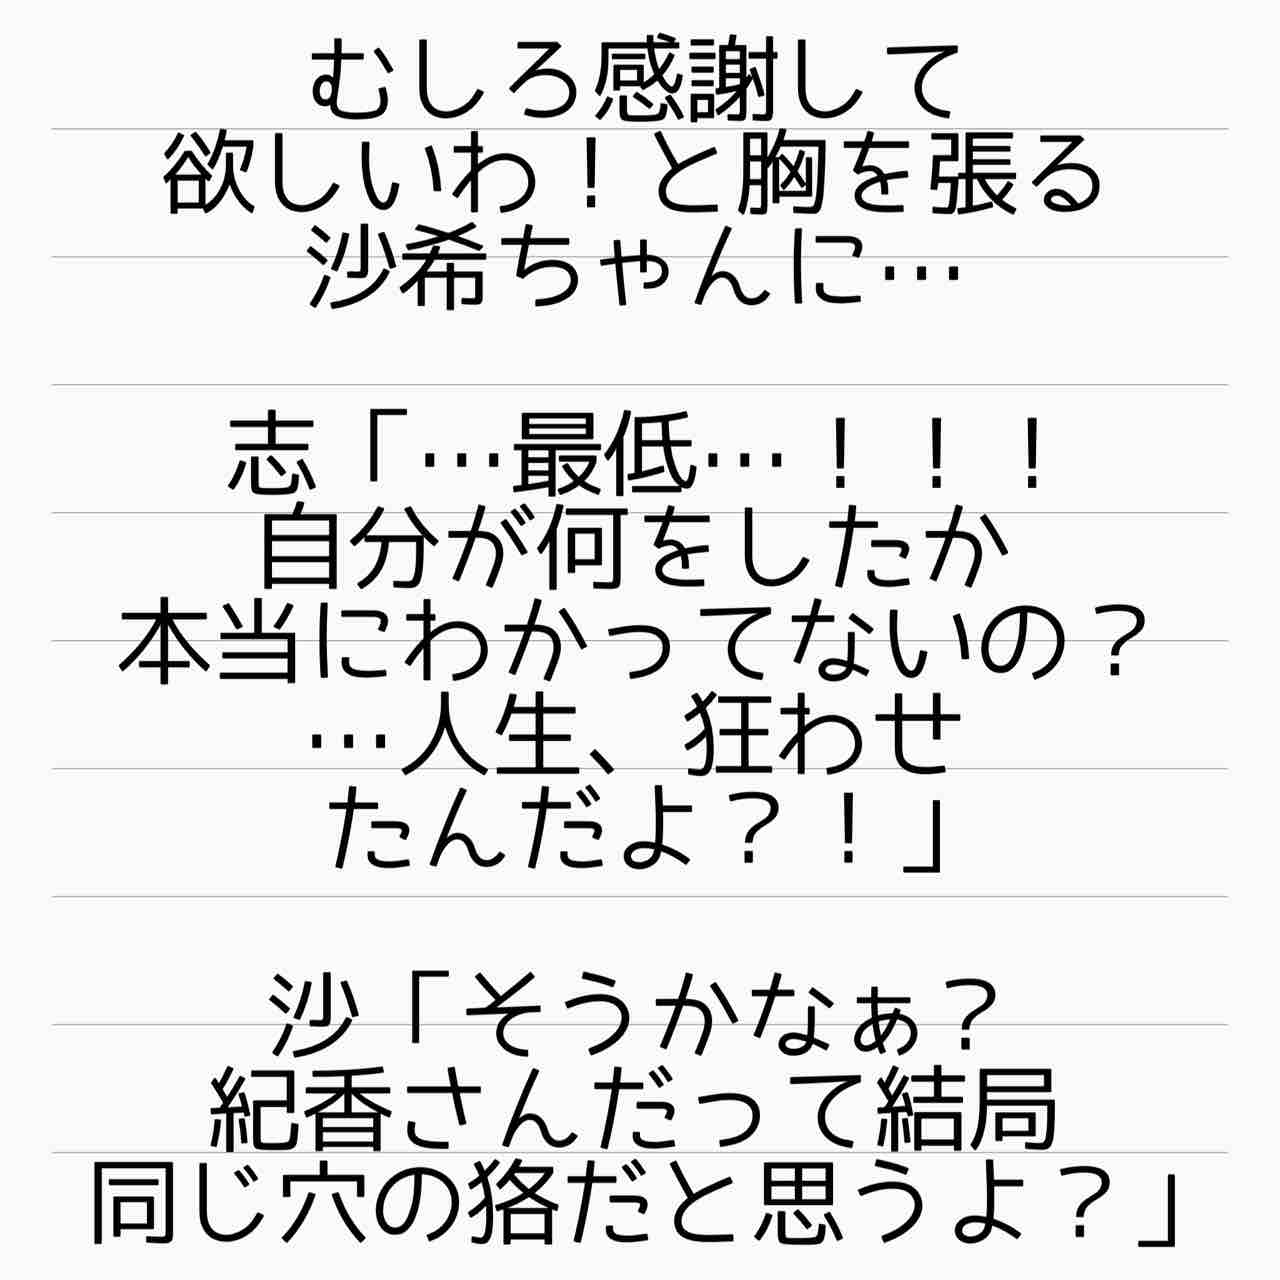 むしろ感謝して
欲しいわ！と胸を張る
沙希ちゃんに…
志「…最低…！！！
自分が何をしたか
本当にわかってないの？
…人生、狂わせ
たんだよ？！」
沙「そうかなぁ？
紀香さんだって結局
同じ穴の狢だと思うよ？」